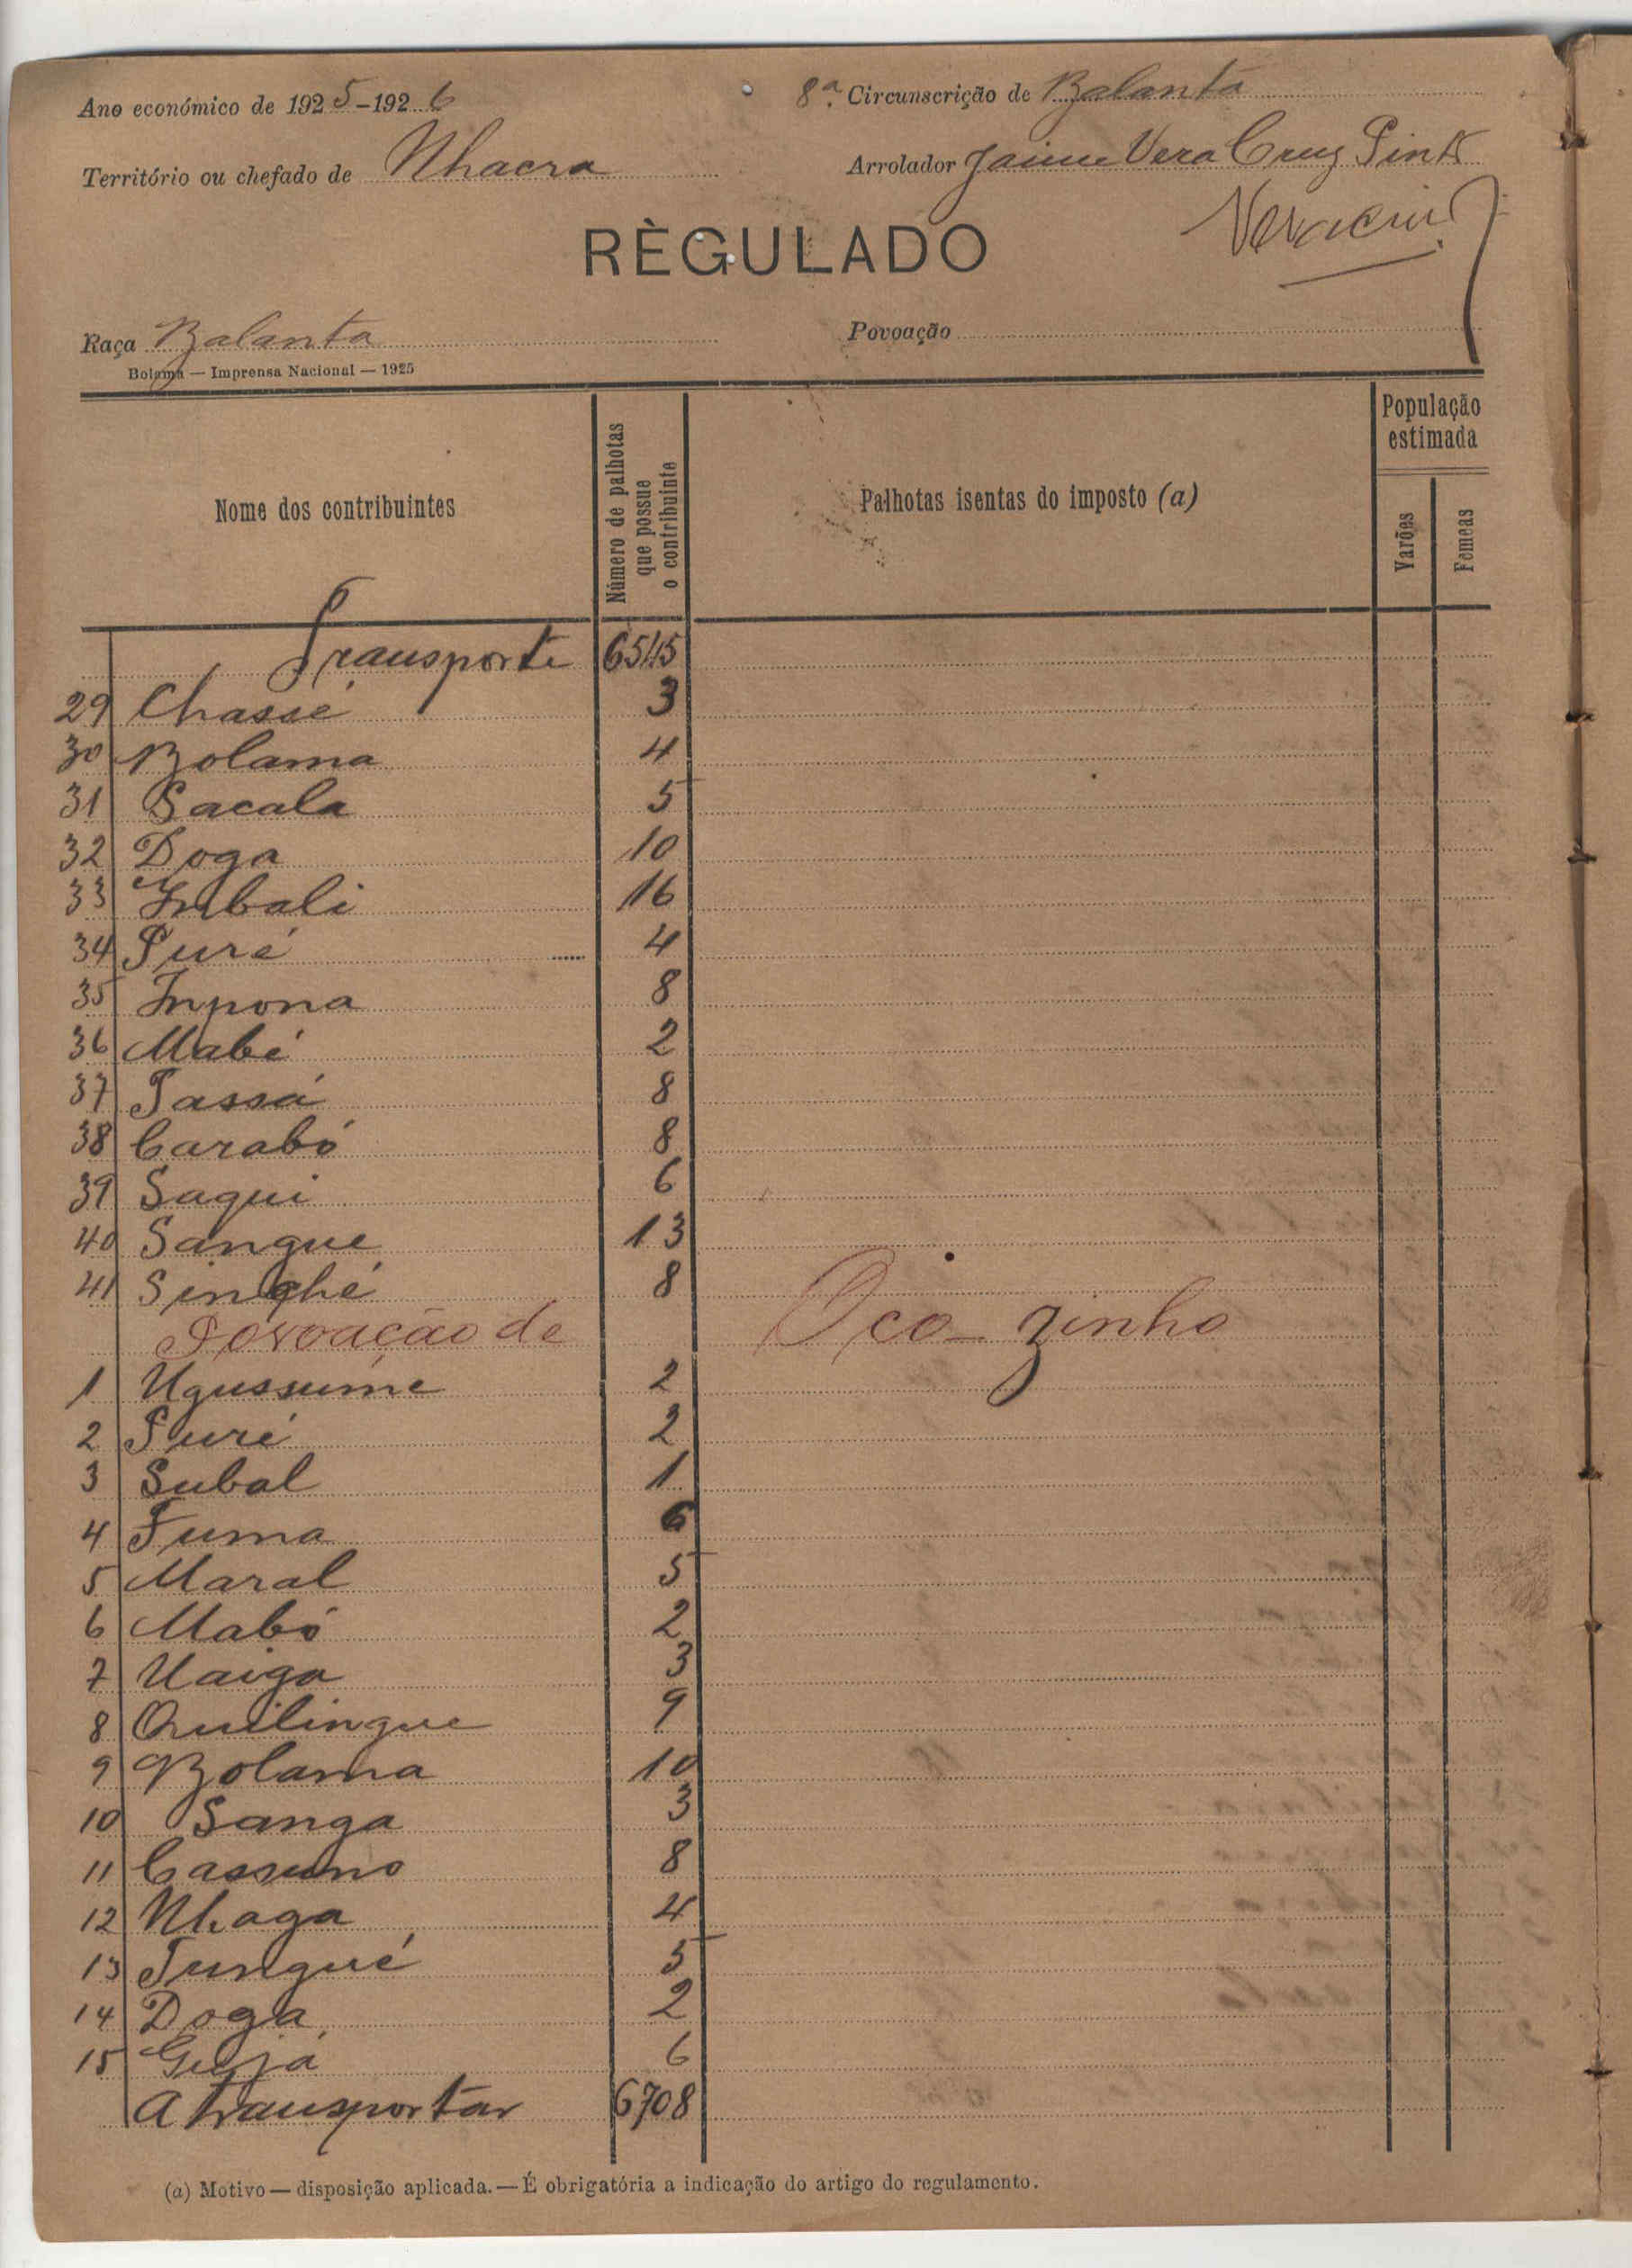 Ano económico de 1925-1926
8ª Circunscrição de Balanta
Território ou chefado de Nhacra
Arrolador Jaime Vera Cruz Pinto
RÈGULADO
Raça Balanta
Povoação
Bolama — Imprensa Nacional — 1925
Nome dos contribuintes
Número de palhotas que possue o contribuinte
Palhotas isentas do imposto (a)
População estimada
Varões
Femeas
Transporte 6545
29 Chassé 3
30 Bolama 4
31 Sacala 5
32 Doga 10
33 Imbali 16
34 Puré 4
35 Inpona 8
36 Mabé 2
37 Tassá 8
38 Carabó 8
39 Sagui 6
40 Sangue 13
41 Singhé 8
Povoação de Oco-zinho
1 Ugussume 2
2 Puré 2
3 Subal 1
4 Fuma 6
5 Maral 5
6 Mabó 2
7 Uaiga 3
8 Quilingue 9
9 Bolama 10
10 Sanga 3
11 Cassumo 8
12 Nhaga 4
13 Tungué 5
14 Doga 2
15 Gujá 6
A transportar 6708
(a) Motivo — disposição aplicada. — É obrigatória a indicação do artigo do regulamento.